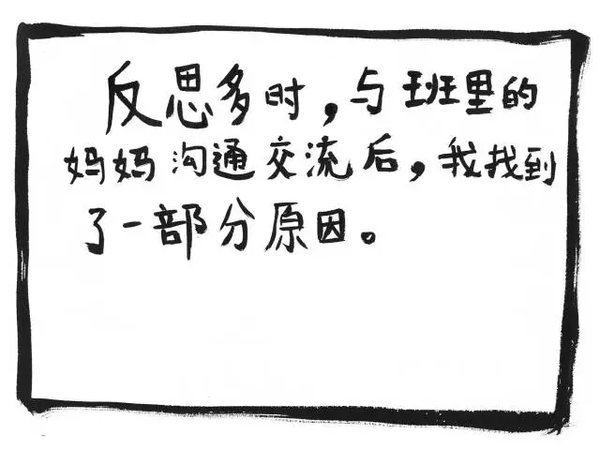 反思多时，与班里的
妈妈沟通交流后，我找到
了一部分原因。